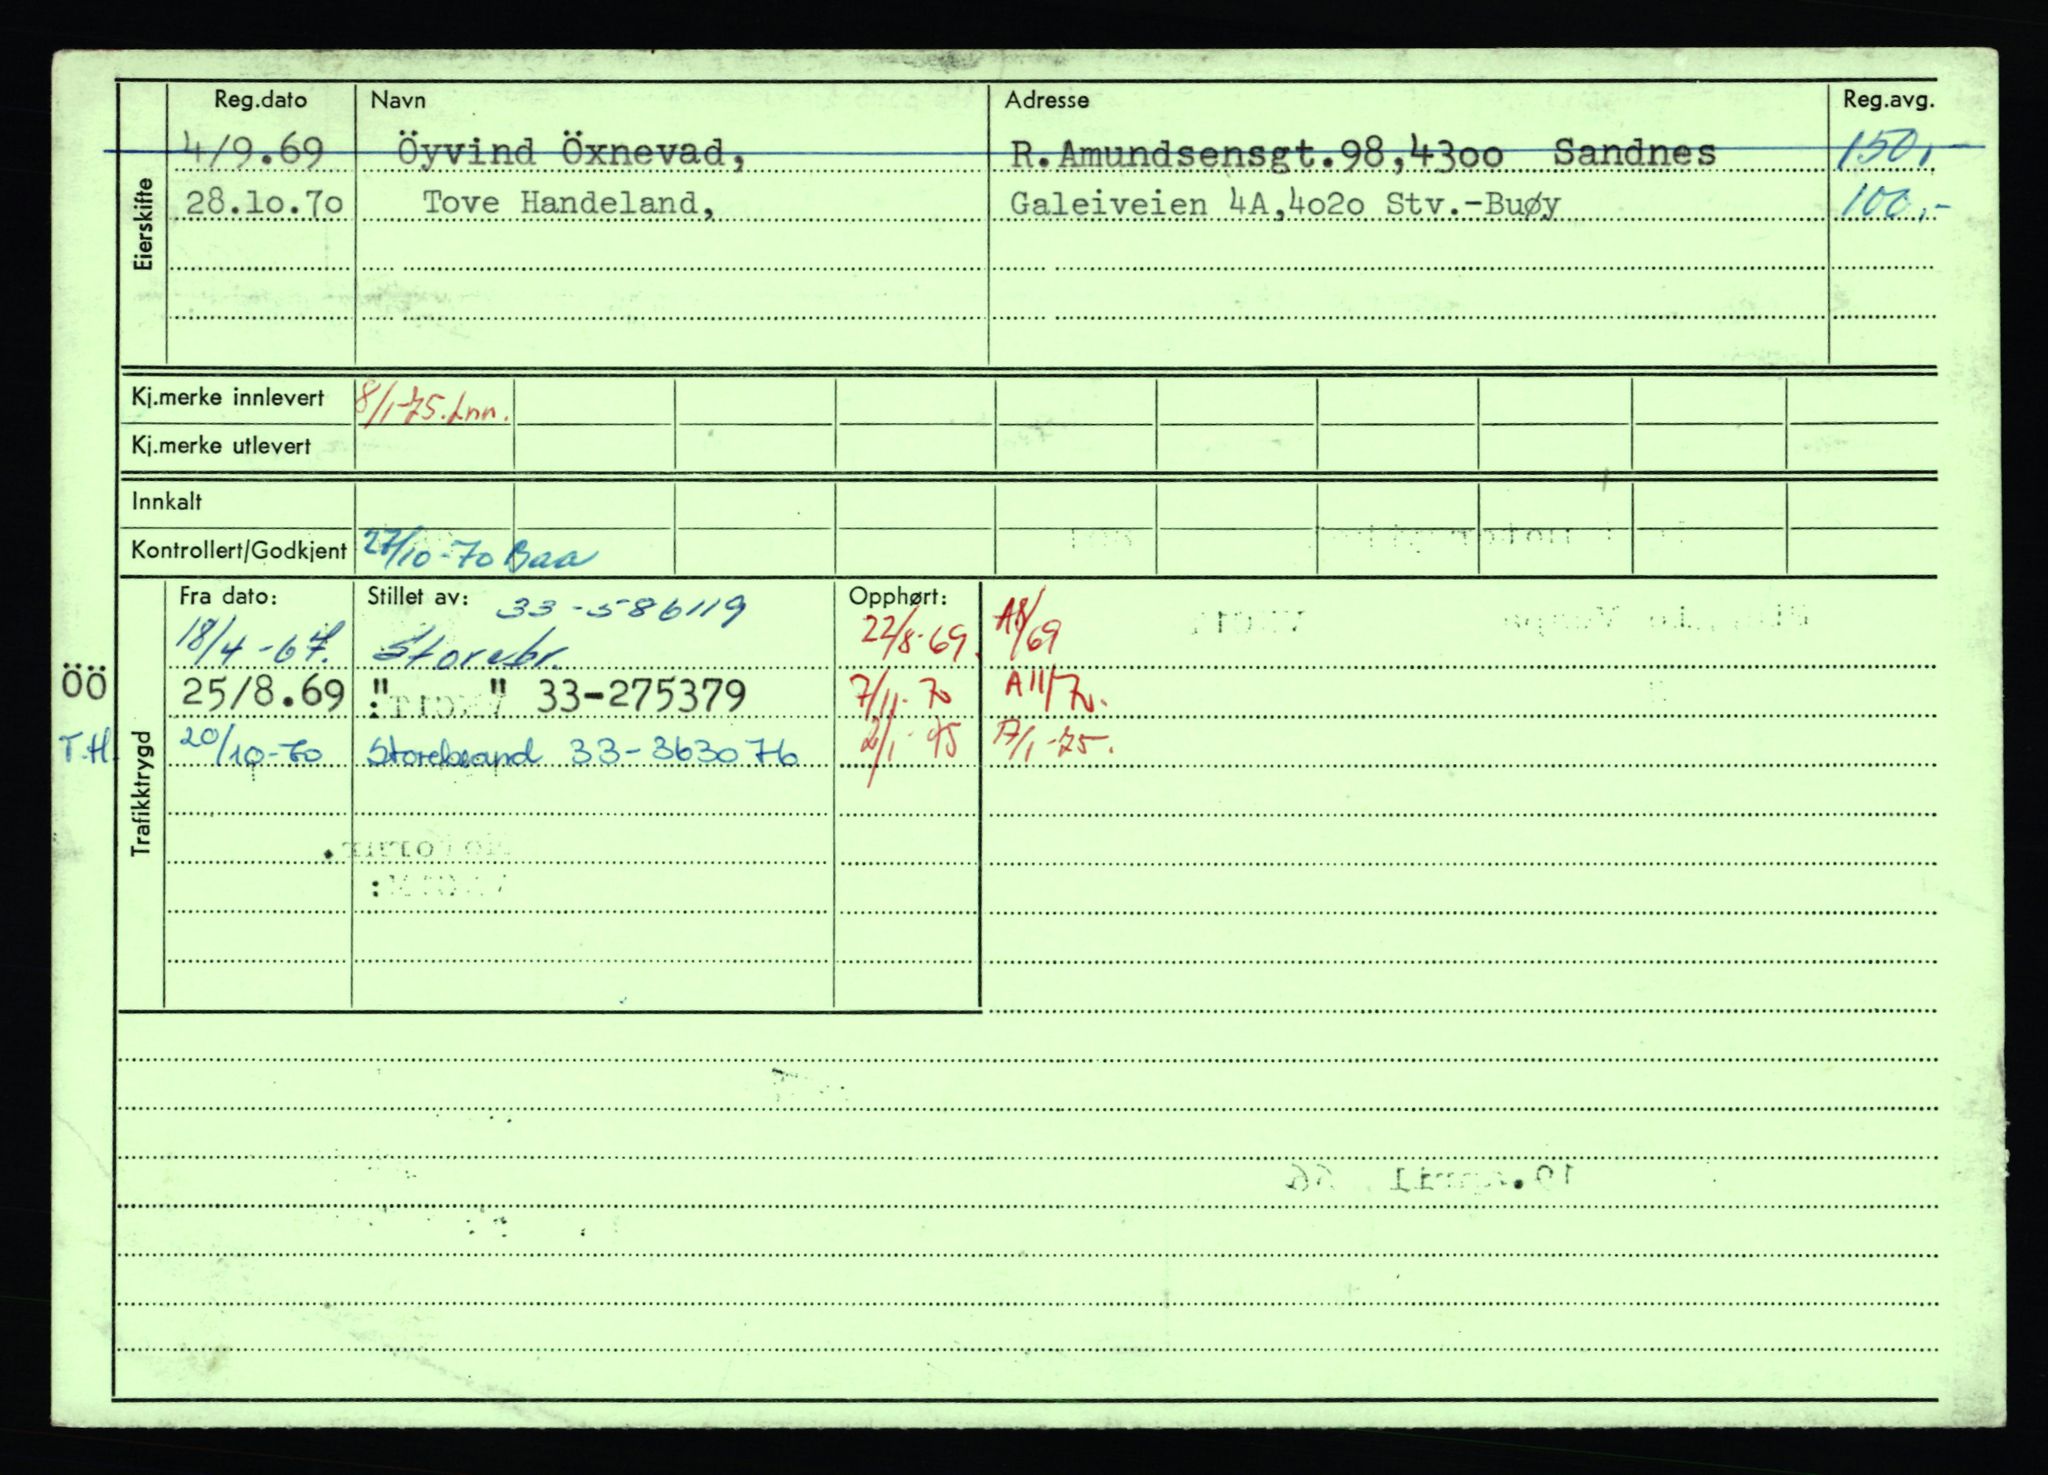 Reg.dato Navn Adresse Reg.avg.
Eierskifte
4/9.69 Öyvind Öxnevad, R.Amundsensgt.98,4300 Sandnes 150,-
28.10.70 Tove Handeland, Galeiveien 4A,4020 Stv.-Buøy 100,-
Kj.merke innlevert 8/1-75. Inn.
Kj.merke utlevert
Innkalt
Kontrollert/Godkjent 27/10-70 Baa
Trafikktrygd
Fra dato: Stillet av: 33-586119 Opphørt:
18/4-67. Storebr. 22/8-69. A8/69
ÖÖ 25/8.69 " " 33-275379 7/11-70 A11/70.
T.H. 20/10-70 Storebrand 33-363076 2/1-75 17/1-75.